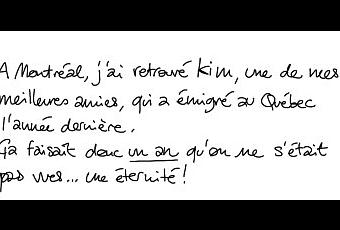 A Montréal, j'ai retrouvé Kim, une de mes
meilleures amies, qui a émigré au Québec
l'année dernière.
Ça faisait donc un an qu'on ne s'était
pas vues... une éternité !